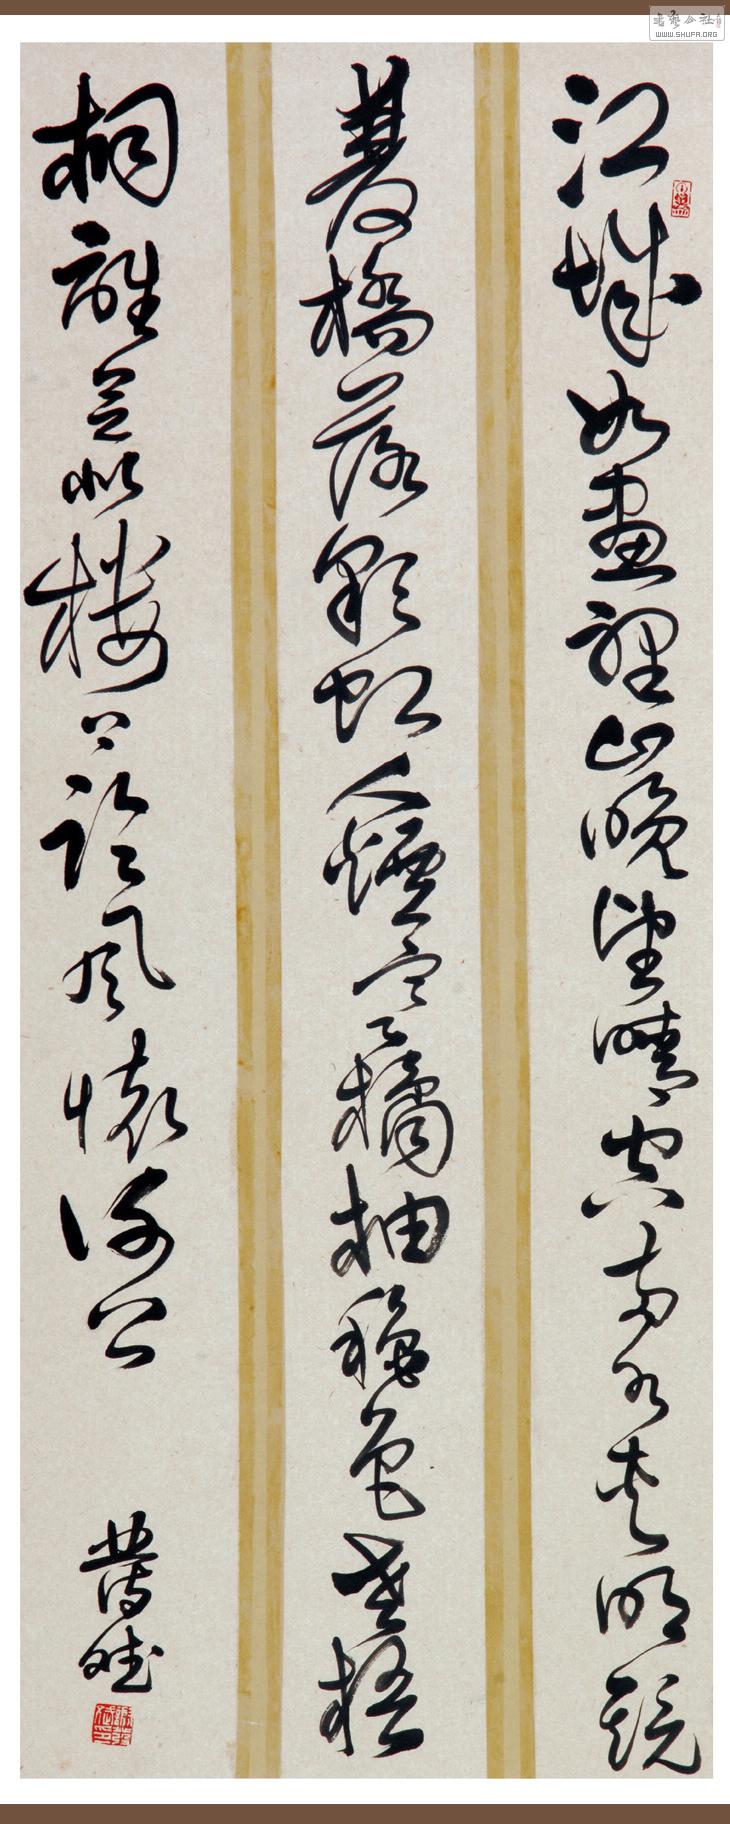 江城如畫裡山晚望晴空兩水夾明鏡
雙橋落彩虹人煙寒橘柚穐色老梧
桐誰念北樓上臨風懷謝公
書藝公社
WWW.SHUFA.ORG